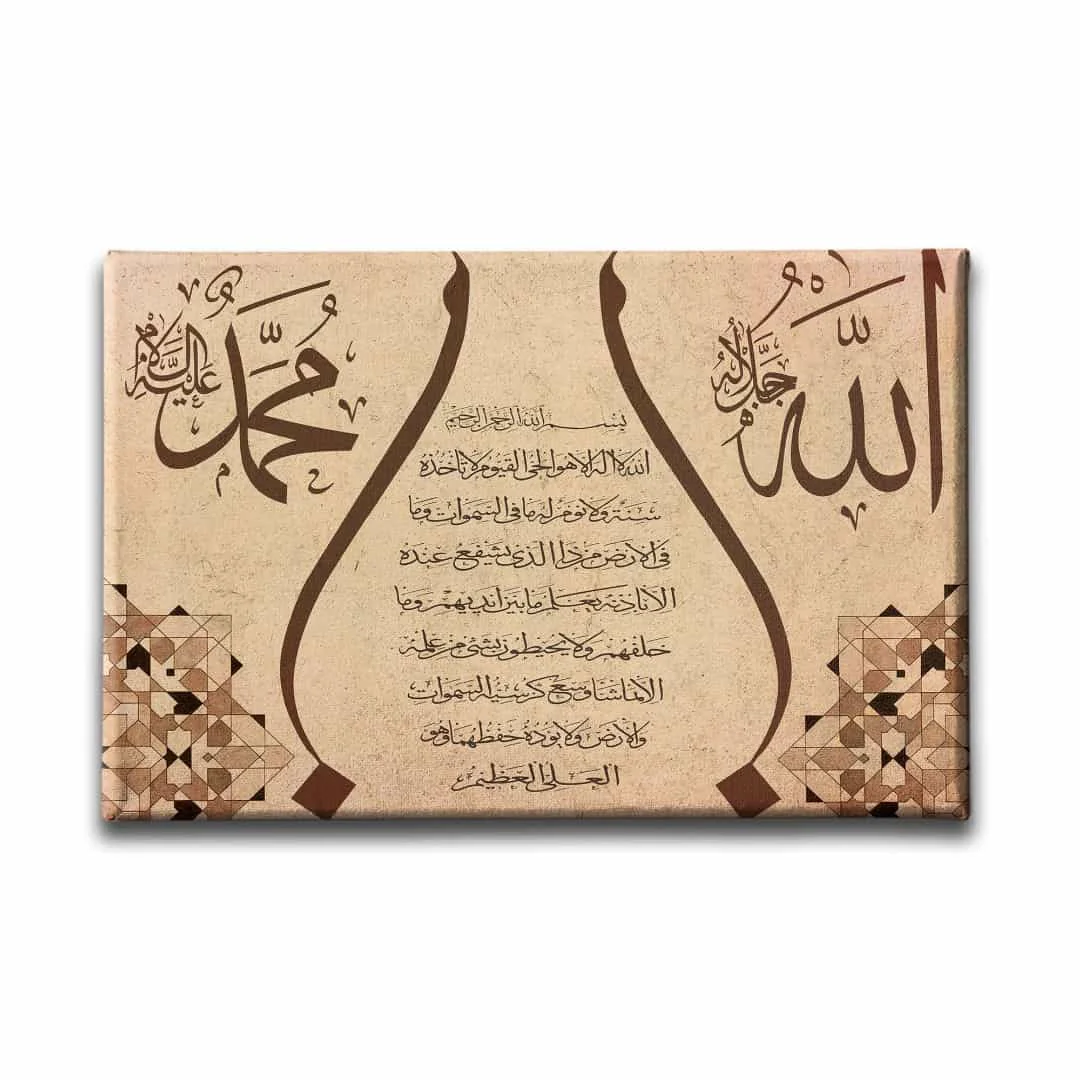 الله
جل جلاله
محمد
عليه السلام
بسم الله الرحمن الرحيم
الله لا اله الا هو الحي القيوم لا تأخذه
سنة ولا نوم له ما في السموات وما
في الارض من ذا الذي يشفع عنده
الا باذنه يعلم ما بين ايديهم وما
خلفهم ولا يحيطون بشئ من علمه
الا بما شا وسع كرسيه السموات
والارض ولا يؤده حفظهما وهو
العلي العظيم